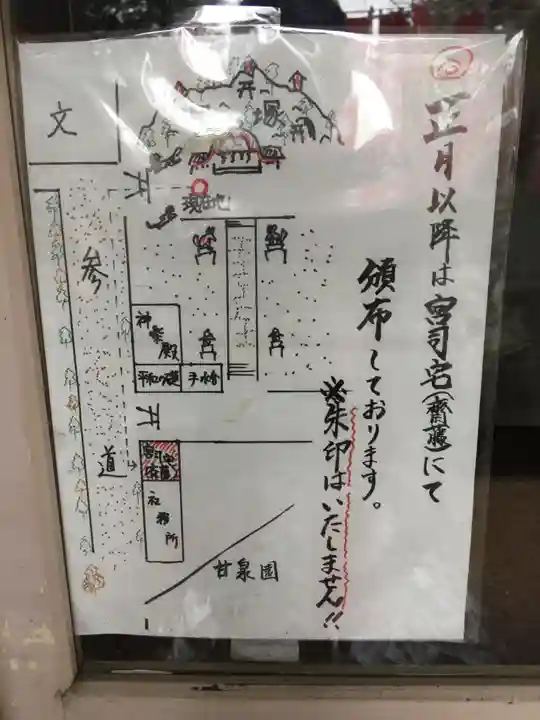 正月以降は宮司宅(齋藤)にて
頒布しております。
※朱印はいたしません!!
文
塚
現在地
参道
神楽殿
手水舎
社務所
甘泉園